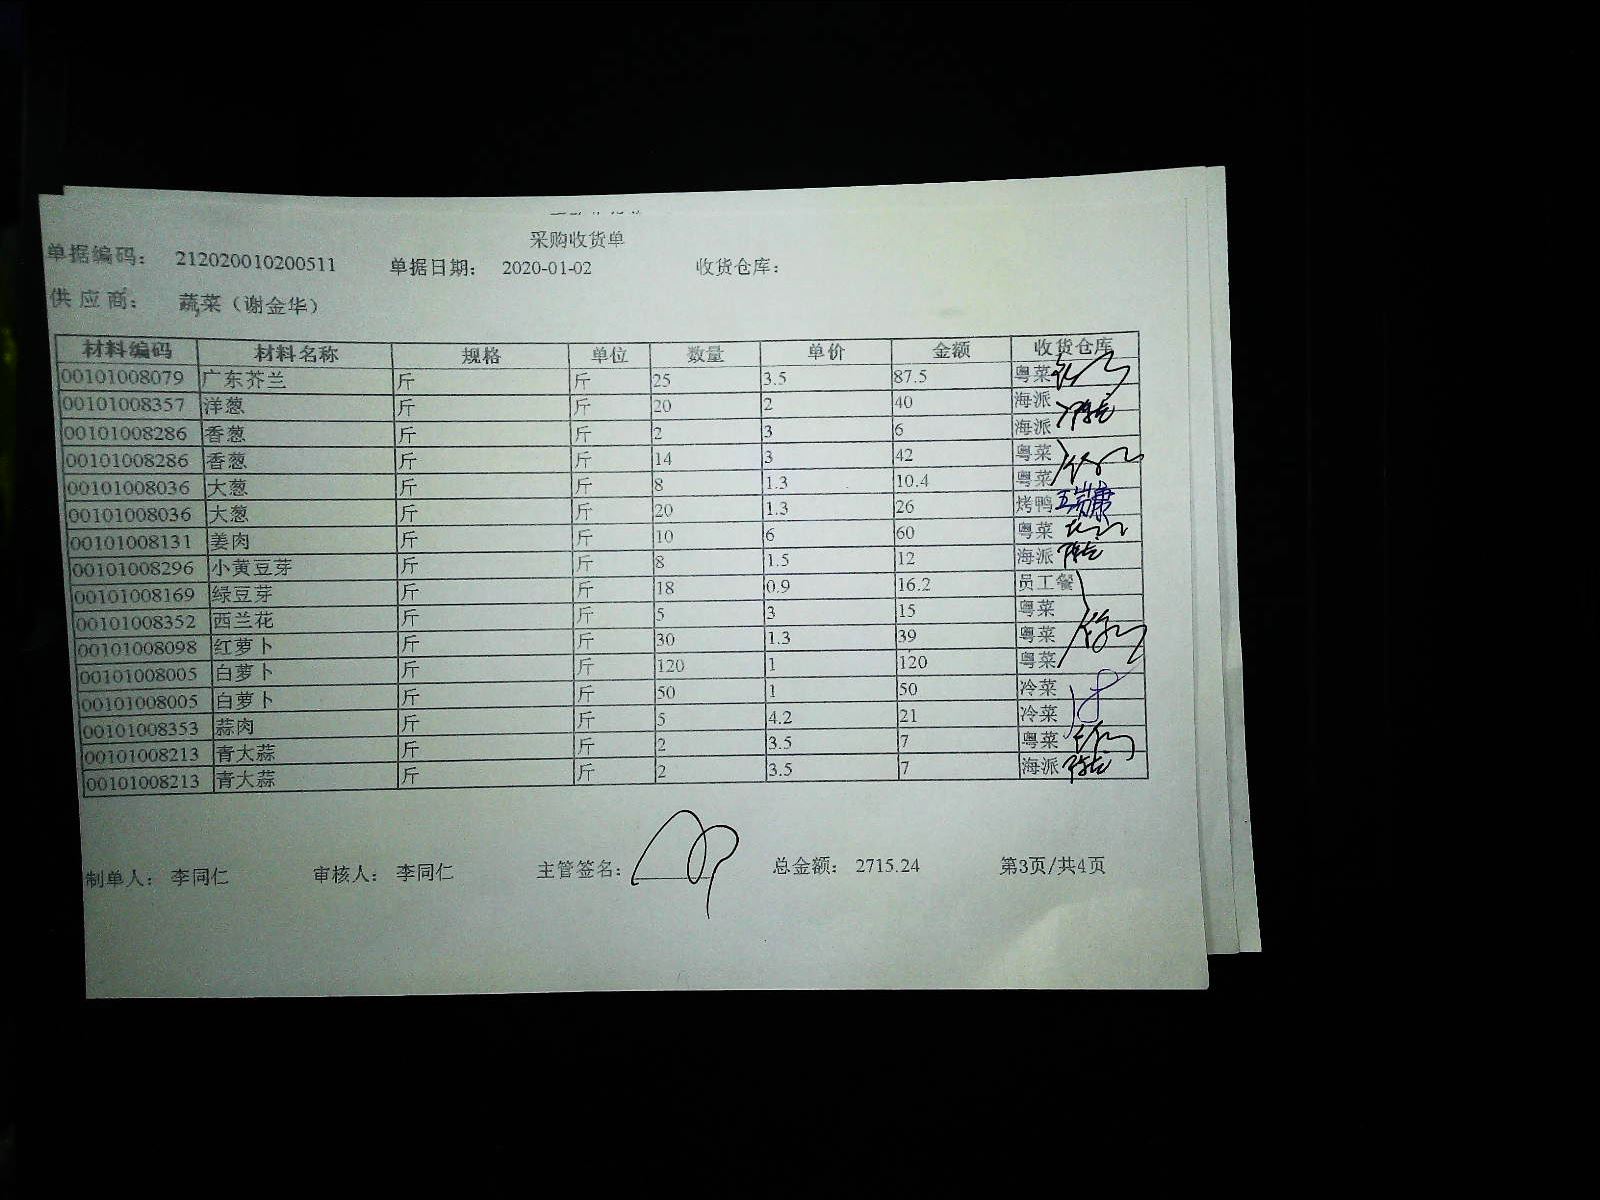 采购收货单
单据编码： 212020010200511 单据日期： 2020-01-02 收货仓库：
供应商： 蔬菜（谢金华）
材料编码 材料名称 规格 单位 数量 单价 金额 收货仓库
00101008079 广东芥兰 斤 斤 25 3.5 87.5 粤菜
00101008357 洋葱 斤 斤 20 2 40 海派
00101008286 香葱 斤 斤 2 3 6 海派
00101008286 香葱 斤 斤 14 3 42 粤菜
00101008036 大葱 斤 斤 8 1.3 10.4 粤菜
00101008036 大葱 斤 斤 20 1.3 26 烤鸭
00101008131 姜肉 斤 斤 10 6 60 粤菜
00101008296 小黄豆芽 斤 斤 8 1.5 12 海派
00101008169 绿豆芽 斤 斤 18 0.9 16.2 员工餐
00101008352 西兰花 斤 斤 5 3 15 粤菜
00101008098 红萝卜 斤 斤 30 1.3 39 粤菜
00101008005 白萝卜 斤 斤 120 1 120 粤菜
00101008005 白萝卜 斤 斤 50 1 50 冷菜
00101008353 蒜肉 斤 斤 5 4.2 21 冷菜
00101008213 青大蒜 斤 斤 2 3.5 7 粤菜
00101008213 青大蒜 斤 斤 2 3.5 7 海派
制单人： 李同仁 审核人： 李同仁 主管签名： 总金额： 2715.24 第3页/共4页